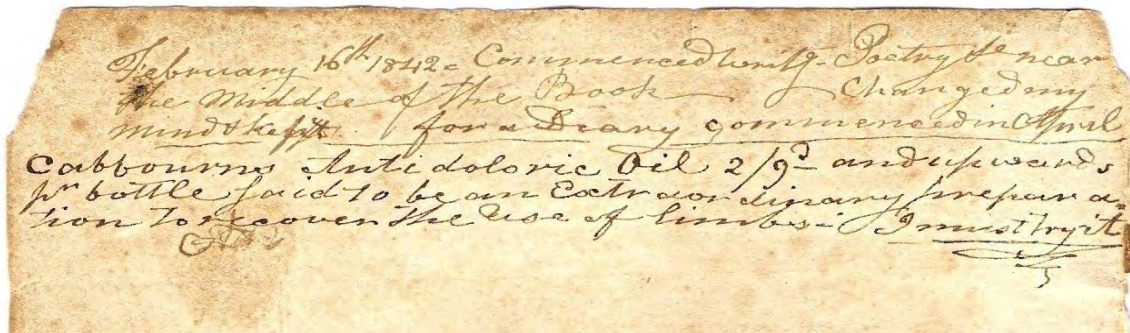 February 16th 1842 - Commenced writg - Poetry &c near
the Middle of the Book - Changed my
mind & kept it for a Deary commenced in April
Cabbourns Antidoloric Oil 2/9d and upwards
pr bottle said to be an Extraordinary prepara-
tion to recover the Use of limbs - I must try it